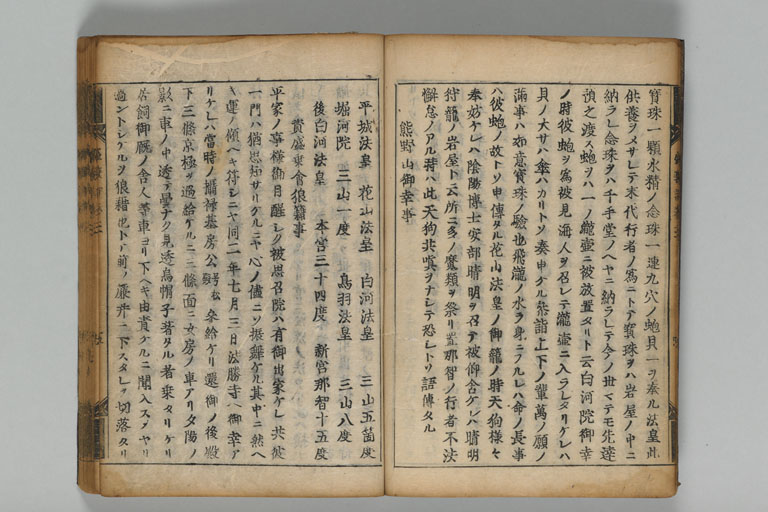 寳珠一顆水精ノ念珠一連九穴ノ蚫貝一ヲ奉ル法皇此
供養ヲメサレテ末代行者ノ為ニトテ寳珠ヲハ岩屋ノ中ニ
納ラレ念珠ヲハ千手堂ノヘヤニ納ラレテ今ノ世マテモ先達
預之渡ス蚫ヲハ一ノ瀧壷ニ被放置タリト云白河院御幸
ノ時彼蚫ヲ為被見海人ヲ召レテ瀧壷ニ入ラレタリケレハ
貝ノ大サハ傘ハカリトソ奏申ケル参詣上下ノ輩萬ノ願ノ
満事ハ如意寳珠ノ驗也飛瀧ノ水ヲ身ニフルレハ命ノ長事
ハ彼蚫ノ故トソ申傳タル花山法皇ノ御籠ノ時天狗様々
奉妨ケレハ陰陽博士安部晴明ヲ召テ被仰含ケレハ晴明
狩籠ノ岩屋ト云所ニ多ノ魔類ヲ祭リ置那智ノ行者不法
懈怠ノアル時ハ此天狗共嗔ヲナシテ恐レトソ語傳タル
熊野山御幸事
平城法皇 花山法皇 白河法皇 三山五箇度
堀河院 三山一度 鳥羽法皇 三山八度
後白河法皇 本宮三十四度 新宮那智十五度
資盛乗會狼籍事
平家ノ事様御目醒シク被思召院ハ有御出家ケレ共彼
一門ハ猶思知サリケルニヤ心ノ儘ニソ振舞ケル其中ニ然ヘ
キ運ノ傾ヘキ符シニヤ同二年七月三日法勝寺ヘ御幸ア
リケレハ當時ノ攝禄基房公号松殿参給ケリ還御ノ後殿
下三條京極ヲ過給ケルニ三條面ニ女房ノ車アリ夕陽ノ
影ニ車ノ中透テ見透烏帽子著タル者乗タリケリ
居飼御厩ノ舎人等車ヨリ下ヘキ由責ケルニ聞入スヲヤリ
過ントシケルヲ狼籍也トテ前ノ簾并ニ下スタレヲ切落タリ